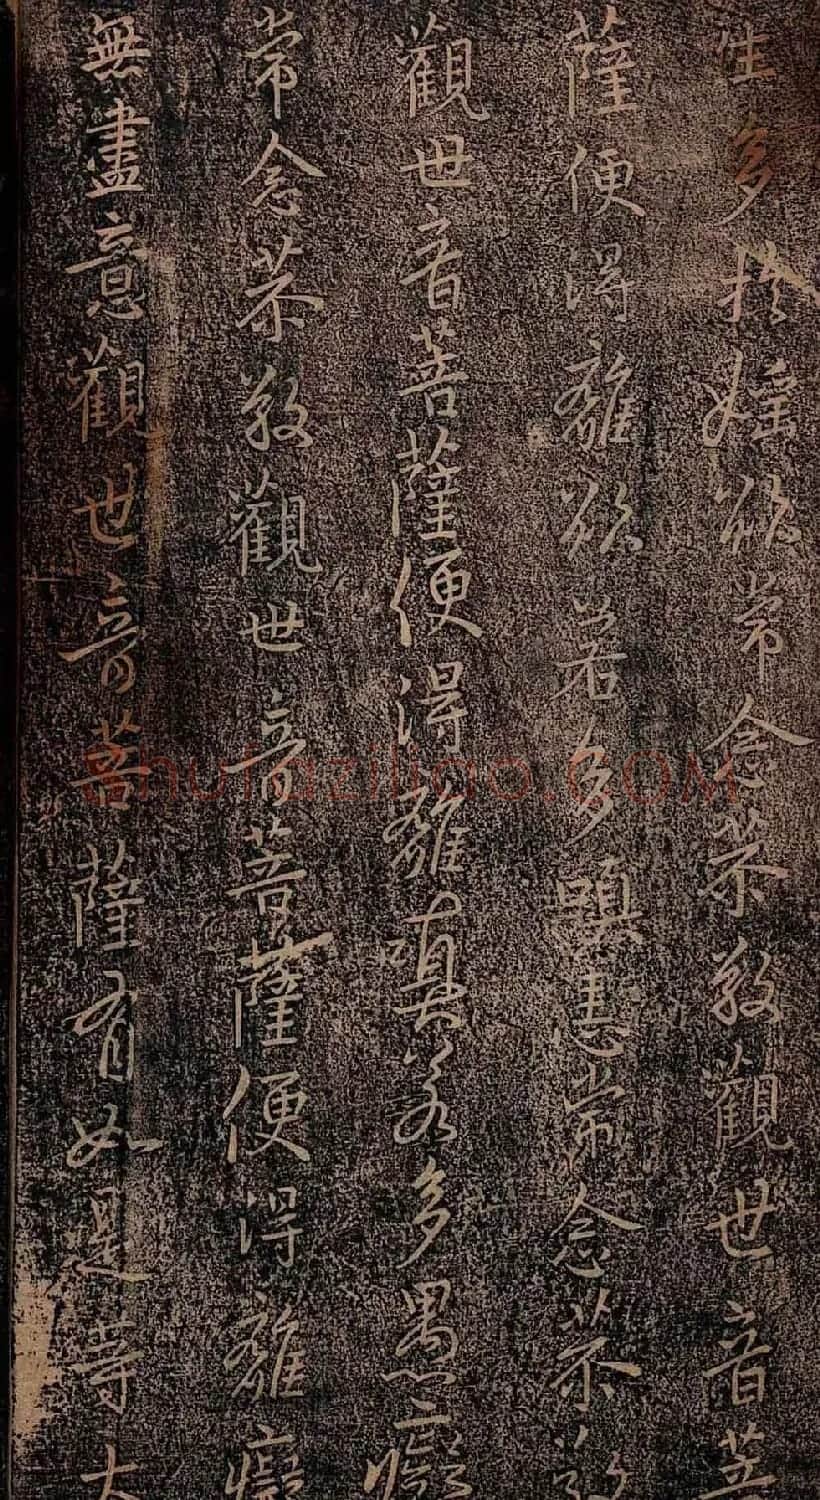 生多於婬欲常念恭敬觀世音菩
薩便得離欲若多瞋恚常念恭敬
觀世音菩薩便得離嗔若多愚癡
常念恭敬觀世音菩薩便得離癡
無盡意觀世音菩薩有如是等大
Shufaziliao.COM